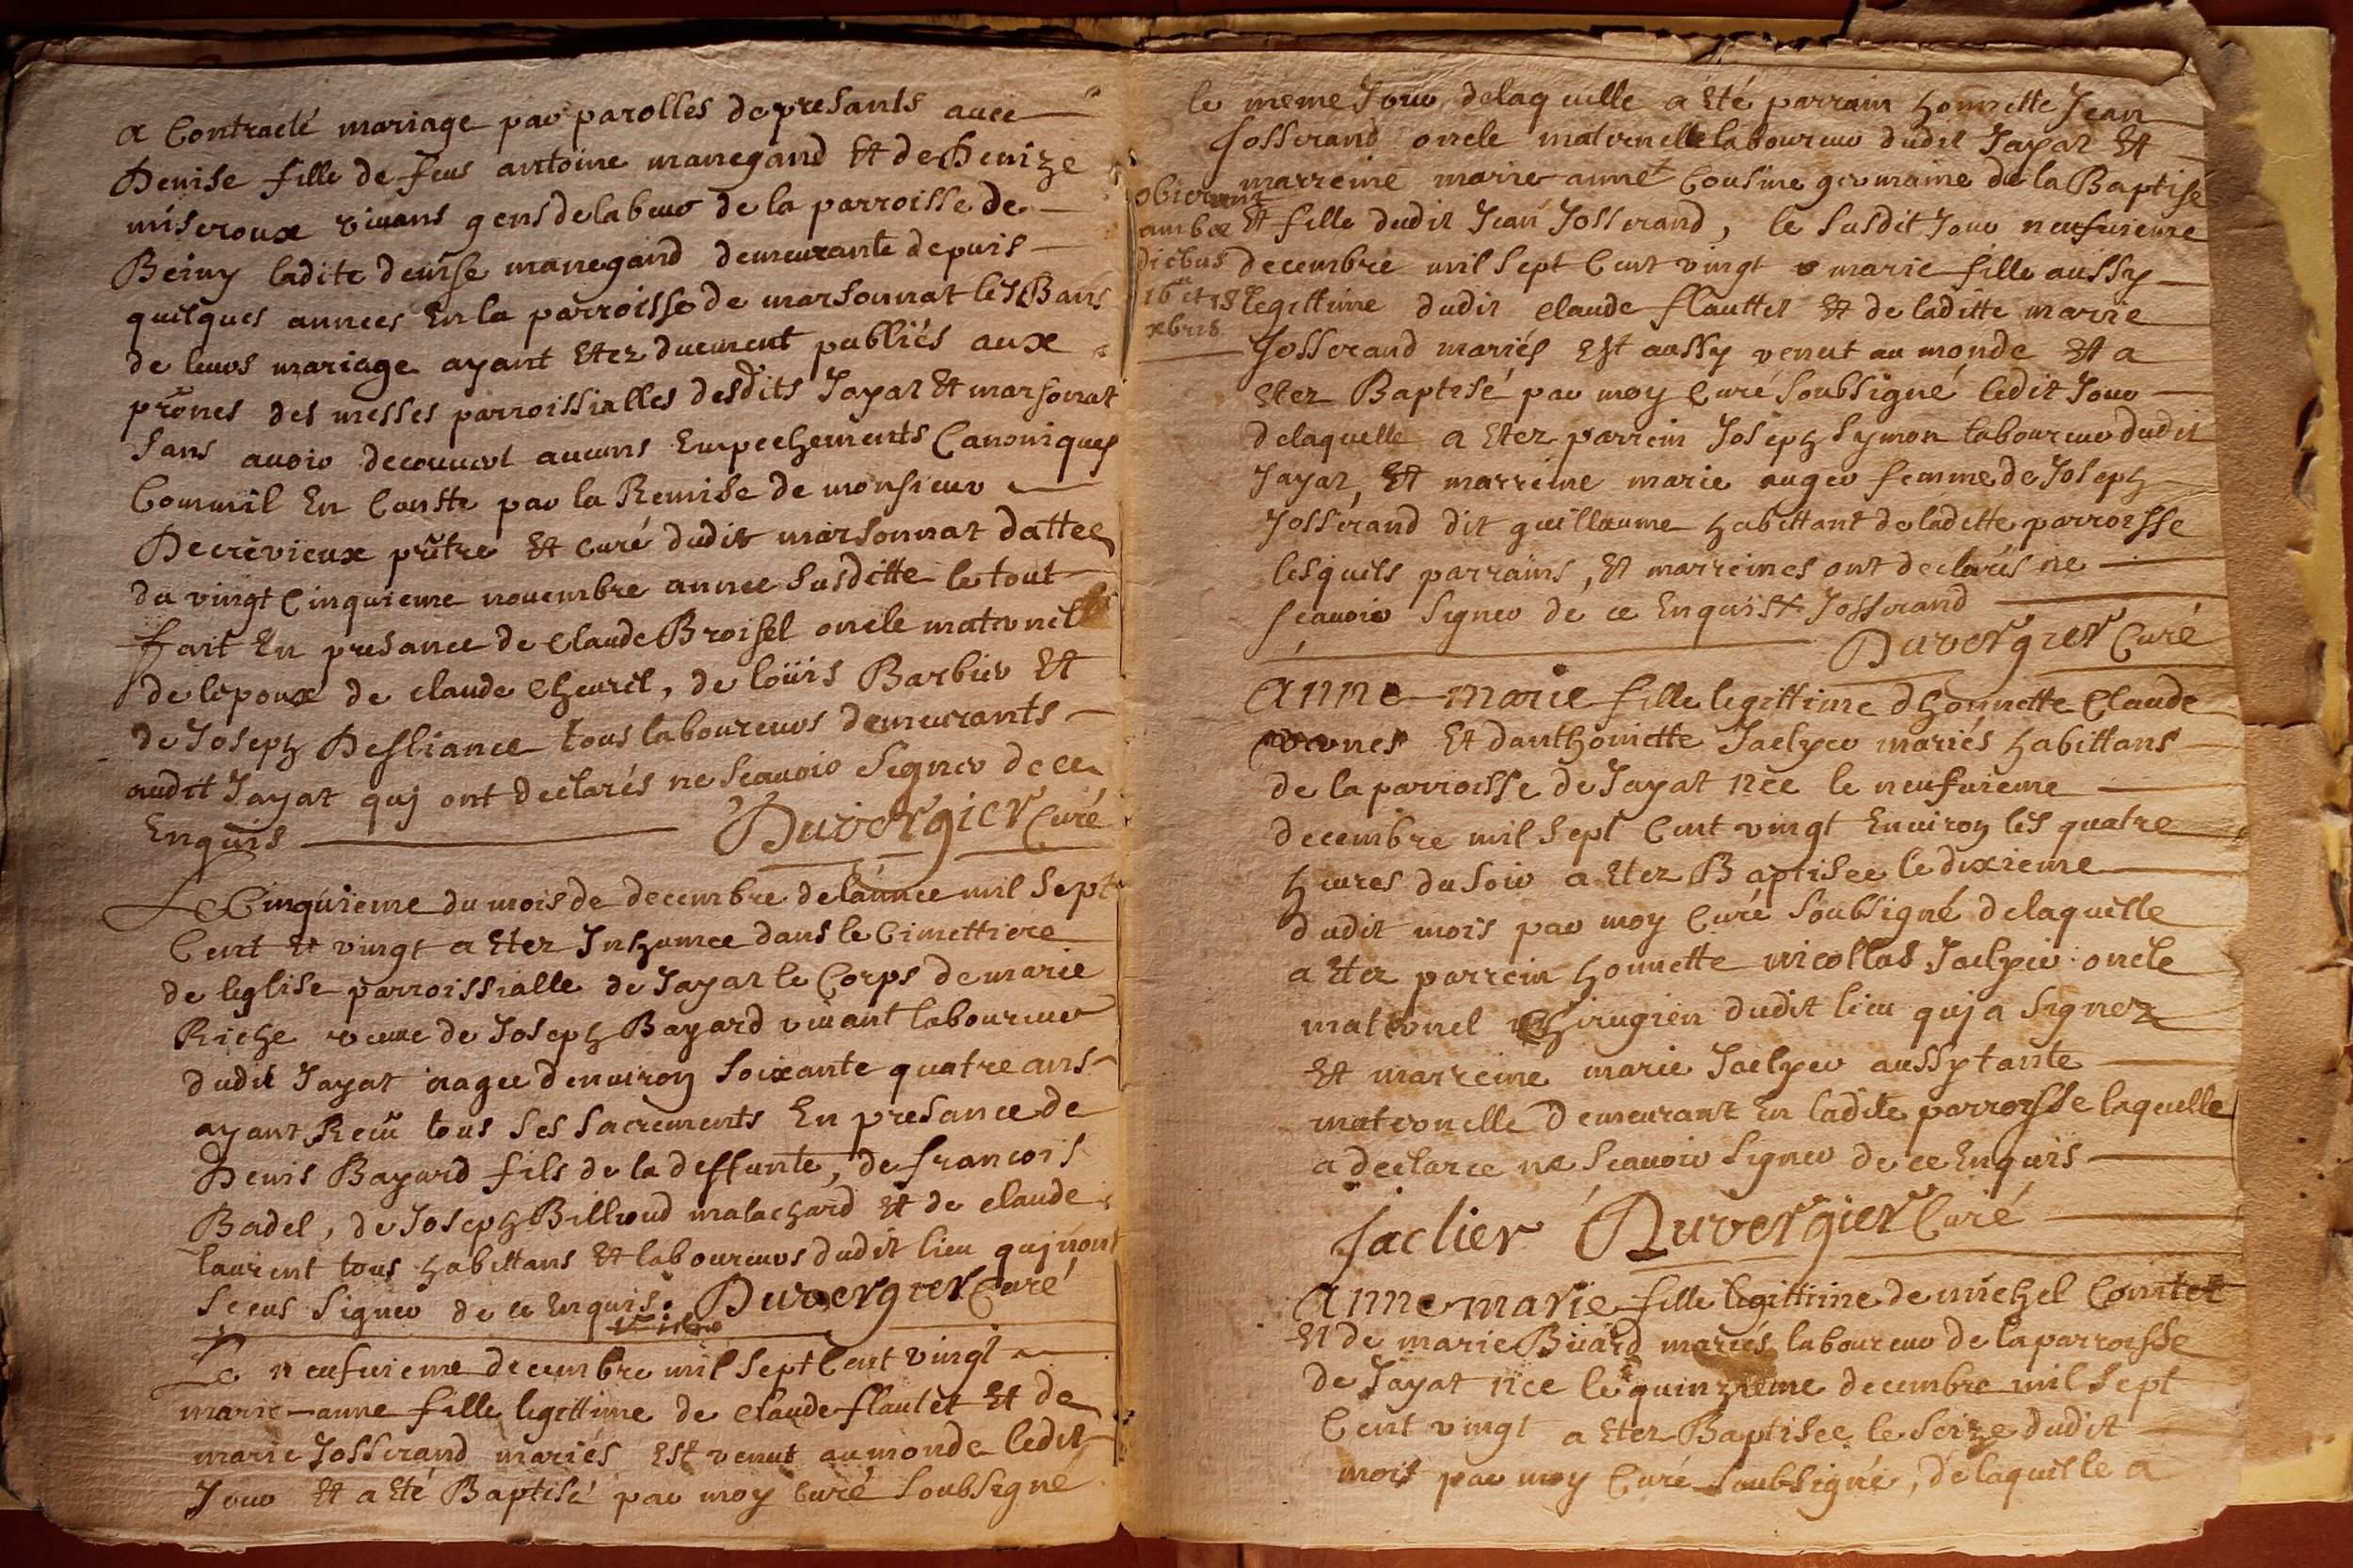 a Contracté mariage par parolles de presants avec
Denise fille de feus antoine manegand Et de Denize
miseroux vivans gens de labeur de la parroisse de
Beiny ladite denise manegand demeurante depuis
quelques annees En la parroisse de marsonnat les Bans
de leurs mariage ayant Etez duement publiés aux
prones des messes parroissialles desdits Jayat Et marsonat
sans avoir decouvert aucuns Empechements Canoniques
Comm'il En Conste par la Remise de monsieur
Decrevieux prêtre Et curé dudit marsonnat dattee
du vingt Cinquieme novembre annee susditte le tout
fait En presance de Claude Broisel oncle maternel
de lepoux de claude Cheuril, de loüis Barbier Et
de Joseph Desliance tous laboureurs demeurants
audit Jayat quj ont declarés ne scavoir signer de ce
Enquis Duvergier Curé
Le Cinquieme du mois de decembre de lannee mil sept
Cent Et vingt a Etez Inhumee dans le Cimettiere
de leglise parroissialle de Jayat le Corps de marie
Riche veuve de Joseph Bayard vivant laboureur
dudit Jayat aagee denviron soixante quatre ans
ayant Receu tous ses sacrements En presance de
Denis Bayard fils de la deffunte, de francois
Badel, de Joseph Billioud malachard Et de claude
laurent tous habittans Et laboureurs dudit lieu quj nont
sceus signer de ce Enquis. Duvergier Curé
Le neufvieme decembre mil sept Cent vingt
marie-anne fille legittime de claude flautet Et de
marie Josserand mariés Est venut au monde ledit
Jour Et a Eté Baptisé par moy curé soubsigné
le meme Jour, delaquelle a Eté parrain honnette Jean
Josserand oncle maternelle laboureur dudit Jayat Et
marreine marie-anne Cousine germaine de la Baptisé
Et fille dudit Jean Josserand, le susdit Jour neufvieme
decembre mil sept Cent vingt marie fille aussy
legittime dudit claude flauttet Et de laditte marie
Josserand mariés Est aussy venut au monde Et a
Etez Baptisé par moy Curé soubsigné ledit Jour
delaquelle a Etez parrein Joseph symon laboureur dudit
Jayat, Et marreine marie auger femme de Joseph
Josserand dit guillaume habittant de laditte parroisse
lesquels parrains, Et marreines ont declarés ne
scavoir signer de ce Enquis Josserand
Duvergier Curé
obierunt
ambæ
diebus
16 et 18
xbris
anne-marie fille legittime dhonnette Claude
Et danthoinette Jaclyer mariés habittans
de la parroisse de Jayat nee le neufvieme
decembre mil sept Cent vingt Environ les quatre
heures du soir a Etez Baptisee le dixieme
dudit mois par moy Curé soubsigné delaquelle
a Etez parrein honnette nicollas Jaclyer oncle
maternel Chirugien dudit lieu quj a signez
Et marreine marie Jaclyer aussy tante
maternelle demeurant En ladite parroisse laquelle
a declaree ne scavoir signer de ce Enquis
Jaclier Duvergier Curé
anne marie fille legittime de michel Comtet
Et de marie Buard mariés laboureur de la parroisse
de Jayat nee le quinzieme decembre mil sept
Cent vingt a Etez Baptisee le seize dudit
mois par moy Curé soubsigné, delaquelle a